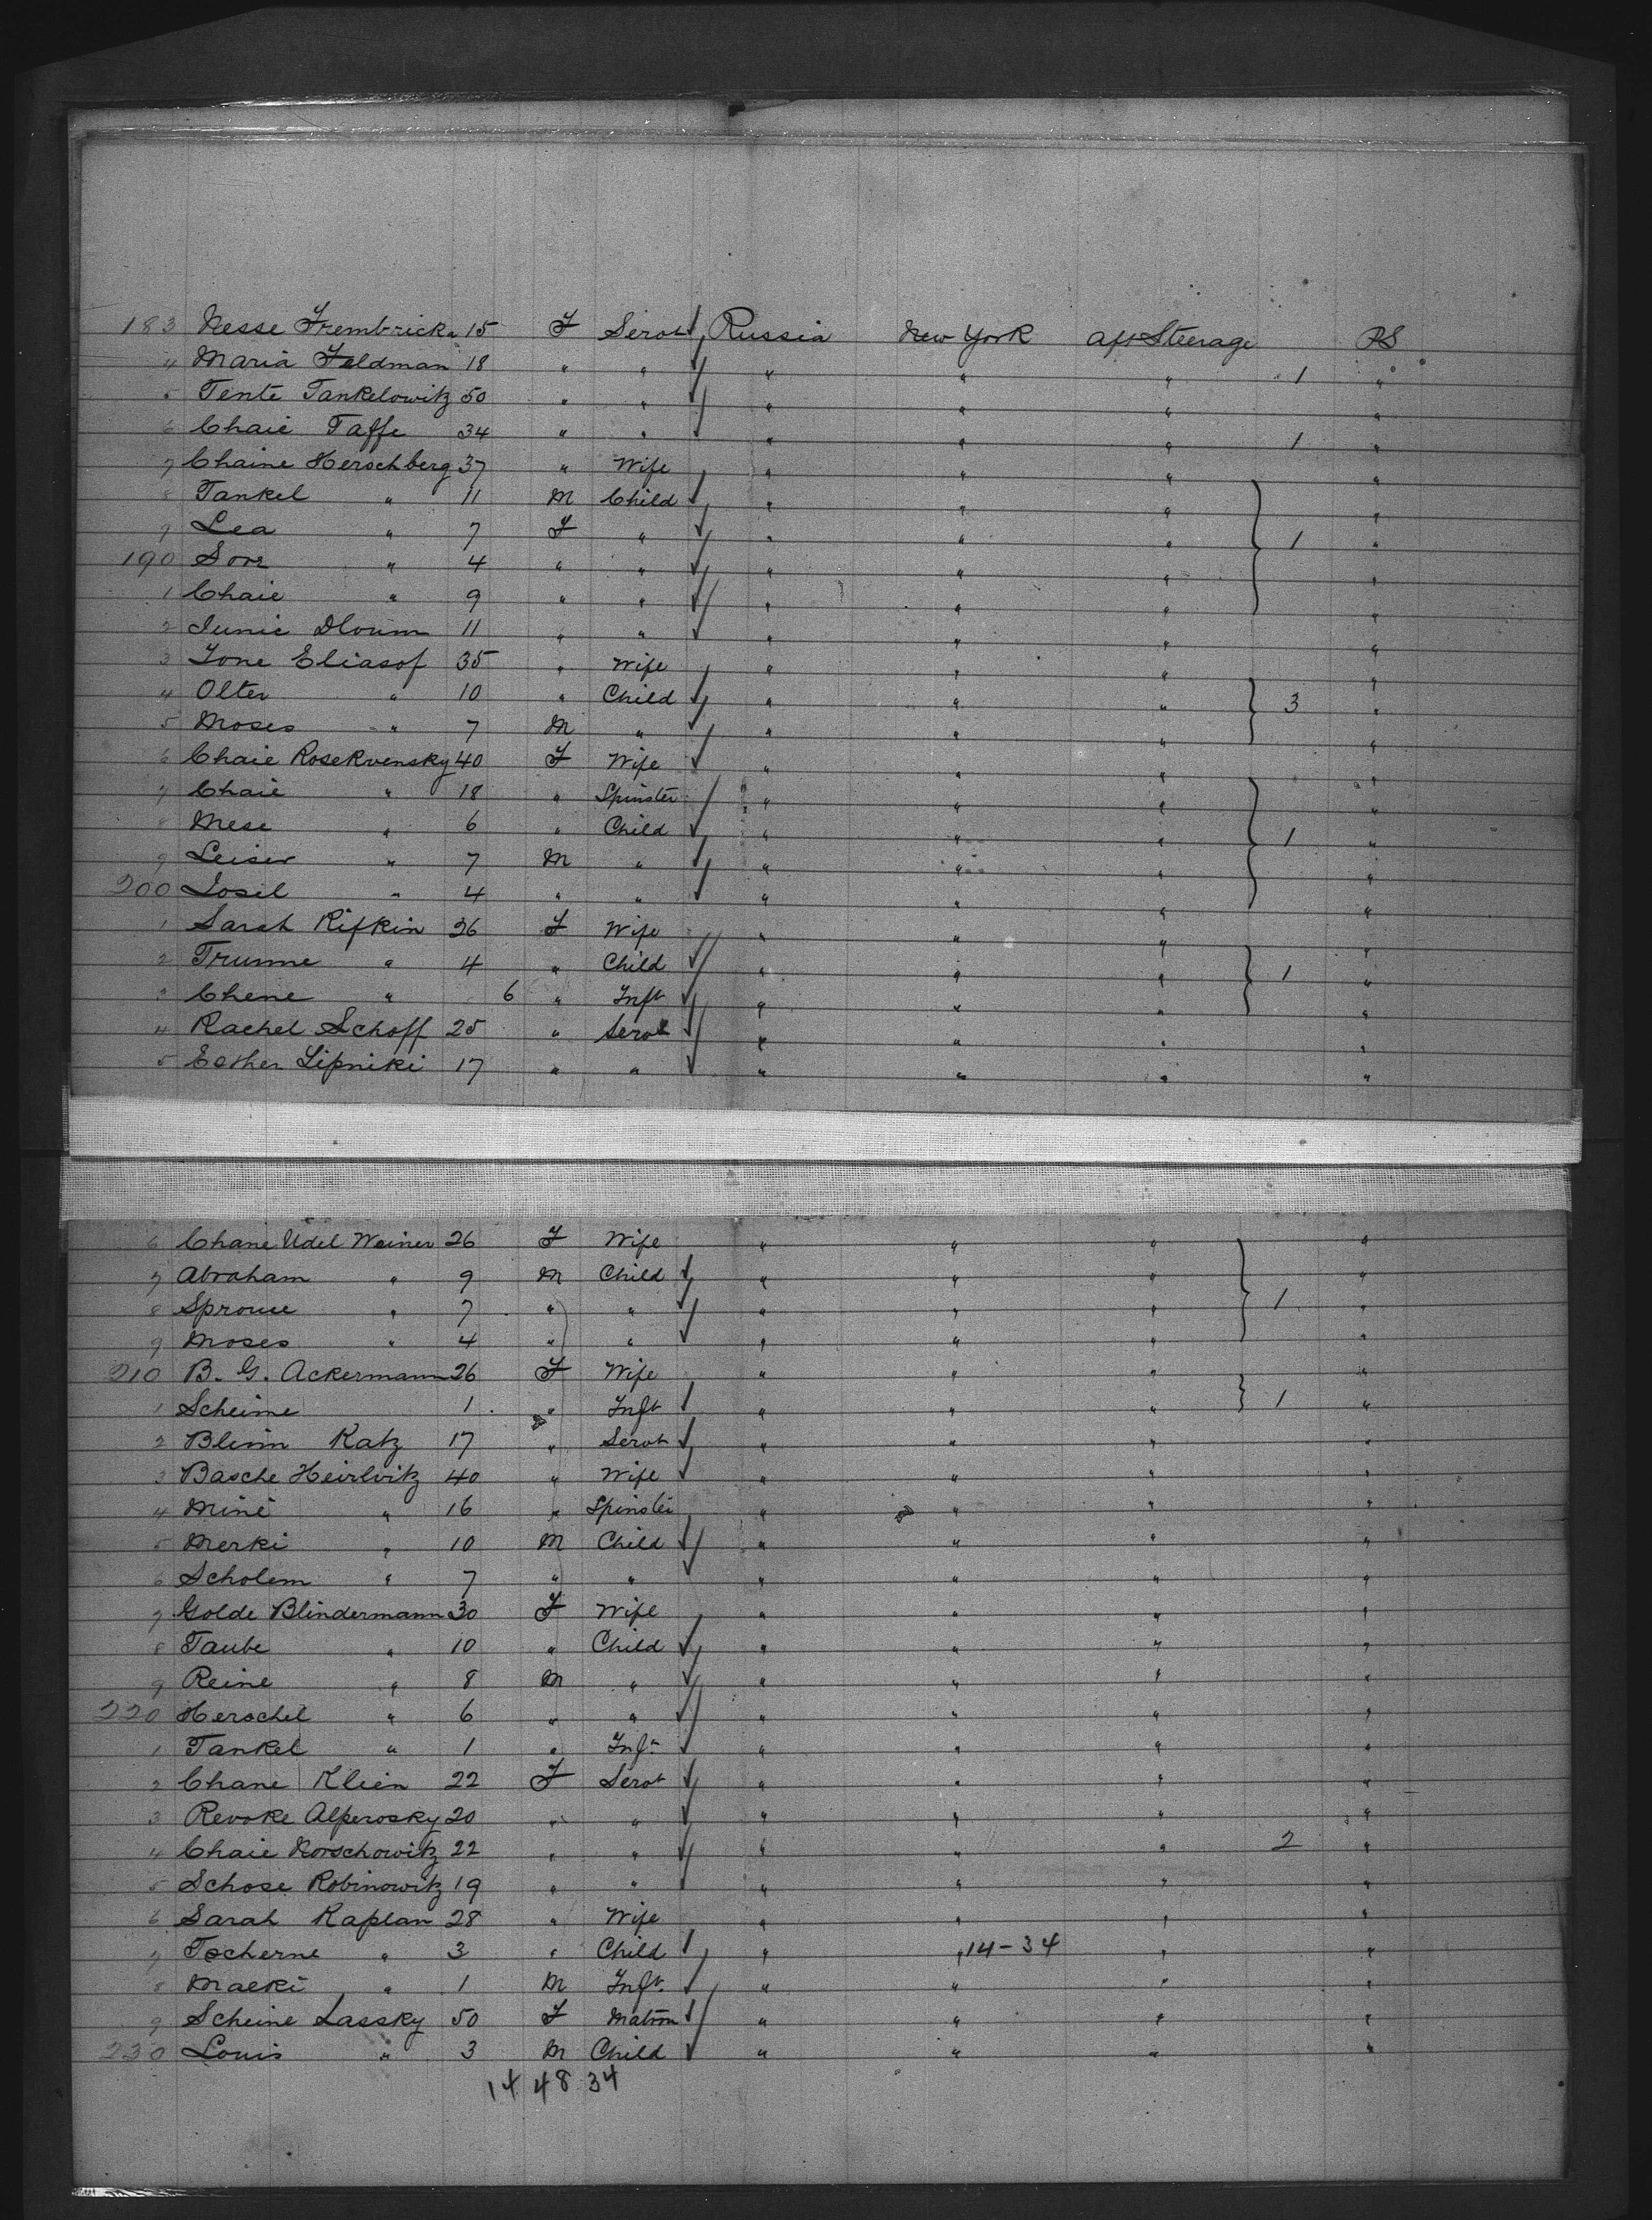 183 Nesse Frembricka 15 F Servt Russia New York Aft Steerage PS
4 Maria Feldman 18 " " " " " 1 "
5 Tente Tankelowitz 50 " " " " " "
6 Chaie Taffe 34 " " " " " 1 "
7 Chaine Herschberg 37 " Wife " " " "
8 Tankel " 11 M Child " " " "
9 Lea " 7 F " " " " 1 "
190 Sore " 4 " " " " " "
1 Chaie " 9 " " " " " "
2 Iunie Dloum 11 " " " " " "
3 Ione Eliasof 35 " Wife " " " "
4 Olter " 10 " Child " " " 3 "
5 Moses " 7 M " " " " "
6 Chaie Rosekvensky 40 F Wife " " " "
7 Chaie " 18 " Spinster " " " "
8 Mese " 6 " Child " " " 1 "
9 Leiser " 7 M " " " " "
200 Josil " 4 " " " " " "
1 Sarah Rifkin 26 F Wife " " " "
2 Trumme " 4 " Child " " " 1 "
3 Chene " 6 " Inft " " " "
4 Rachel Schoff 25 " Servt " " " "
5 Esther Lipniki 17 " " " " " "
6 Chane Udel Weiner 26 F Wife " " " "
7 Abraham " 9 M Child " " " "
8 Sproue " 7 " " " " " 1 "
9 Moses " 4 " " " " " "
210 B. G. Ackermann 26 F Wife " " " "
1 Scheime 1 " Inft " " " 1 "
2 Blimm Katz 17 " Servt " " " "
3 Basche Heirlvitz 40 " Wife " " " "
4 Mine " 16 " Spinster " " " "
5 Merki " 10 M Child " " " "
6 Scholem " 7 " " " " " "
7 Golde Blindermann 30 F Wife " " " "
8 Taube " 10 " Child " " " "
9 Reine " 8 M " " " " "
220 Herschel " 6 " " " " " "
1 Tankel " 1 " Inft " " " "
2 Chane Klein 22 F Servt " " " "
3 Revoke Alperosky 20 " " " " " "
4 Chaie Norschowitz 22 " " " " " 2 "
5 Schose Robinowitz 19 " " " " " "
6 Sarah Kaplan 28 " Wife " " " "
7 Tocherne " 3 " Child " " 14-34 " "
8 Malki " 1 M Inft " " " "
9 Scheine Lassky 50 F Matron " " " "
230 Louis " 3 M Child " " " "
14 48 34